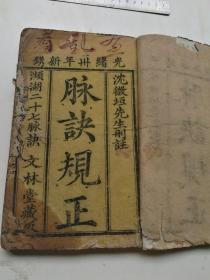 光緒卅年新鐫
沈微垣先生刪註
脉訣規正
瀕湖二十七脉訣 文林堂藏板